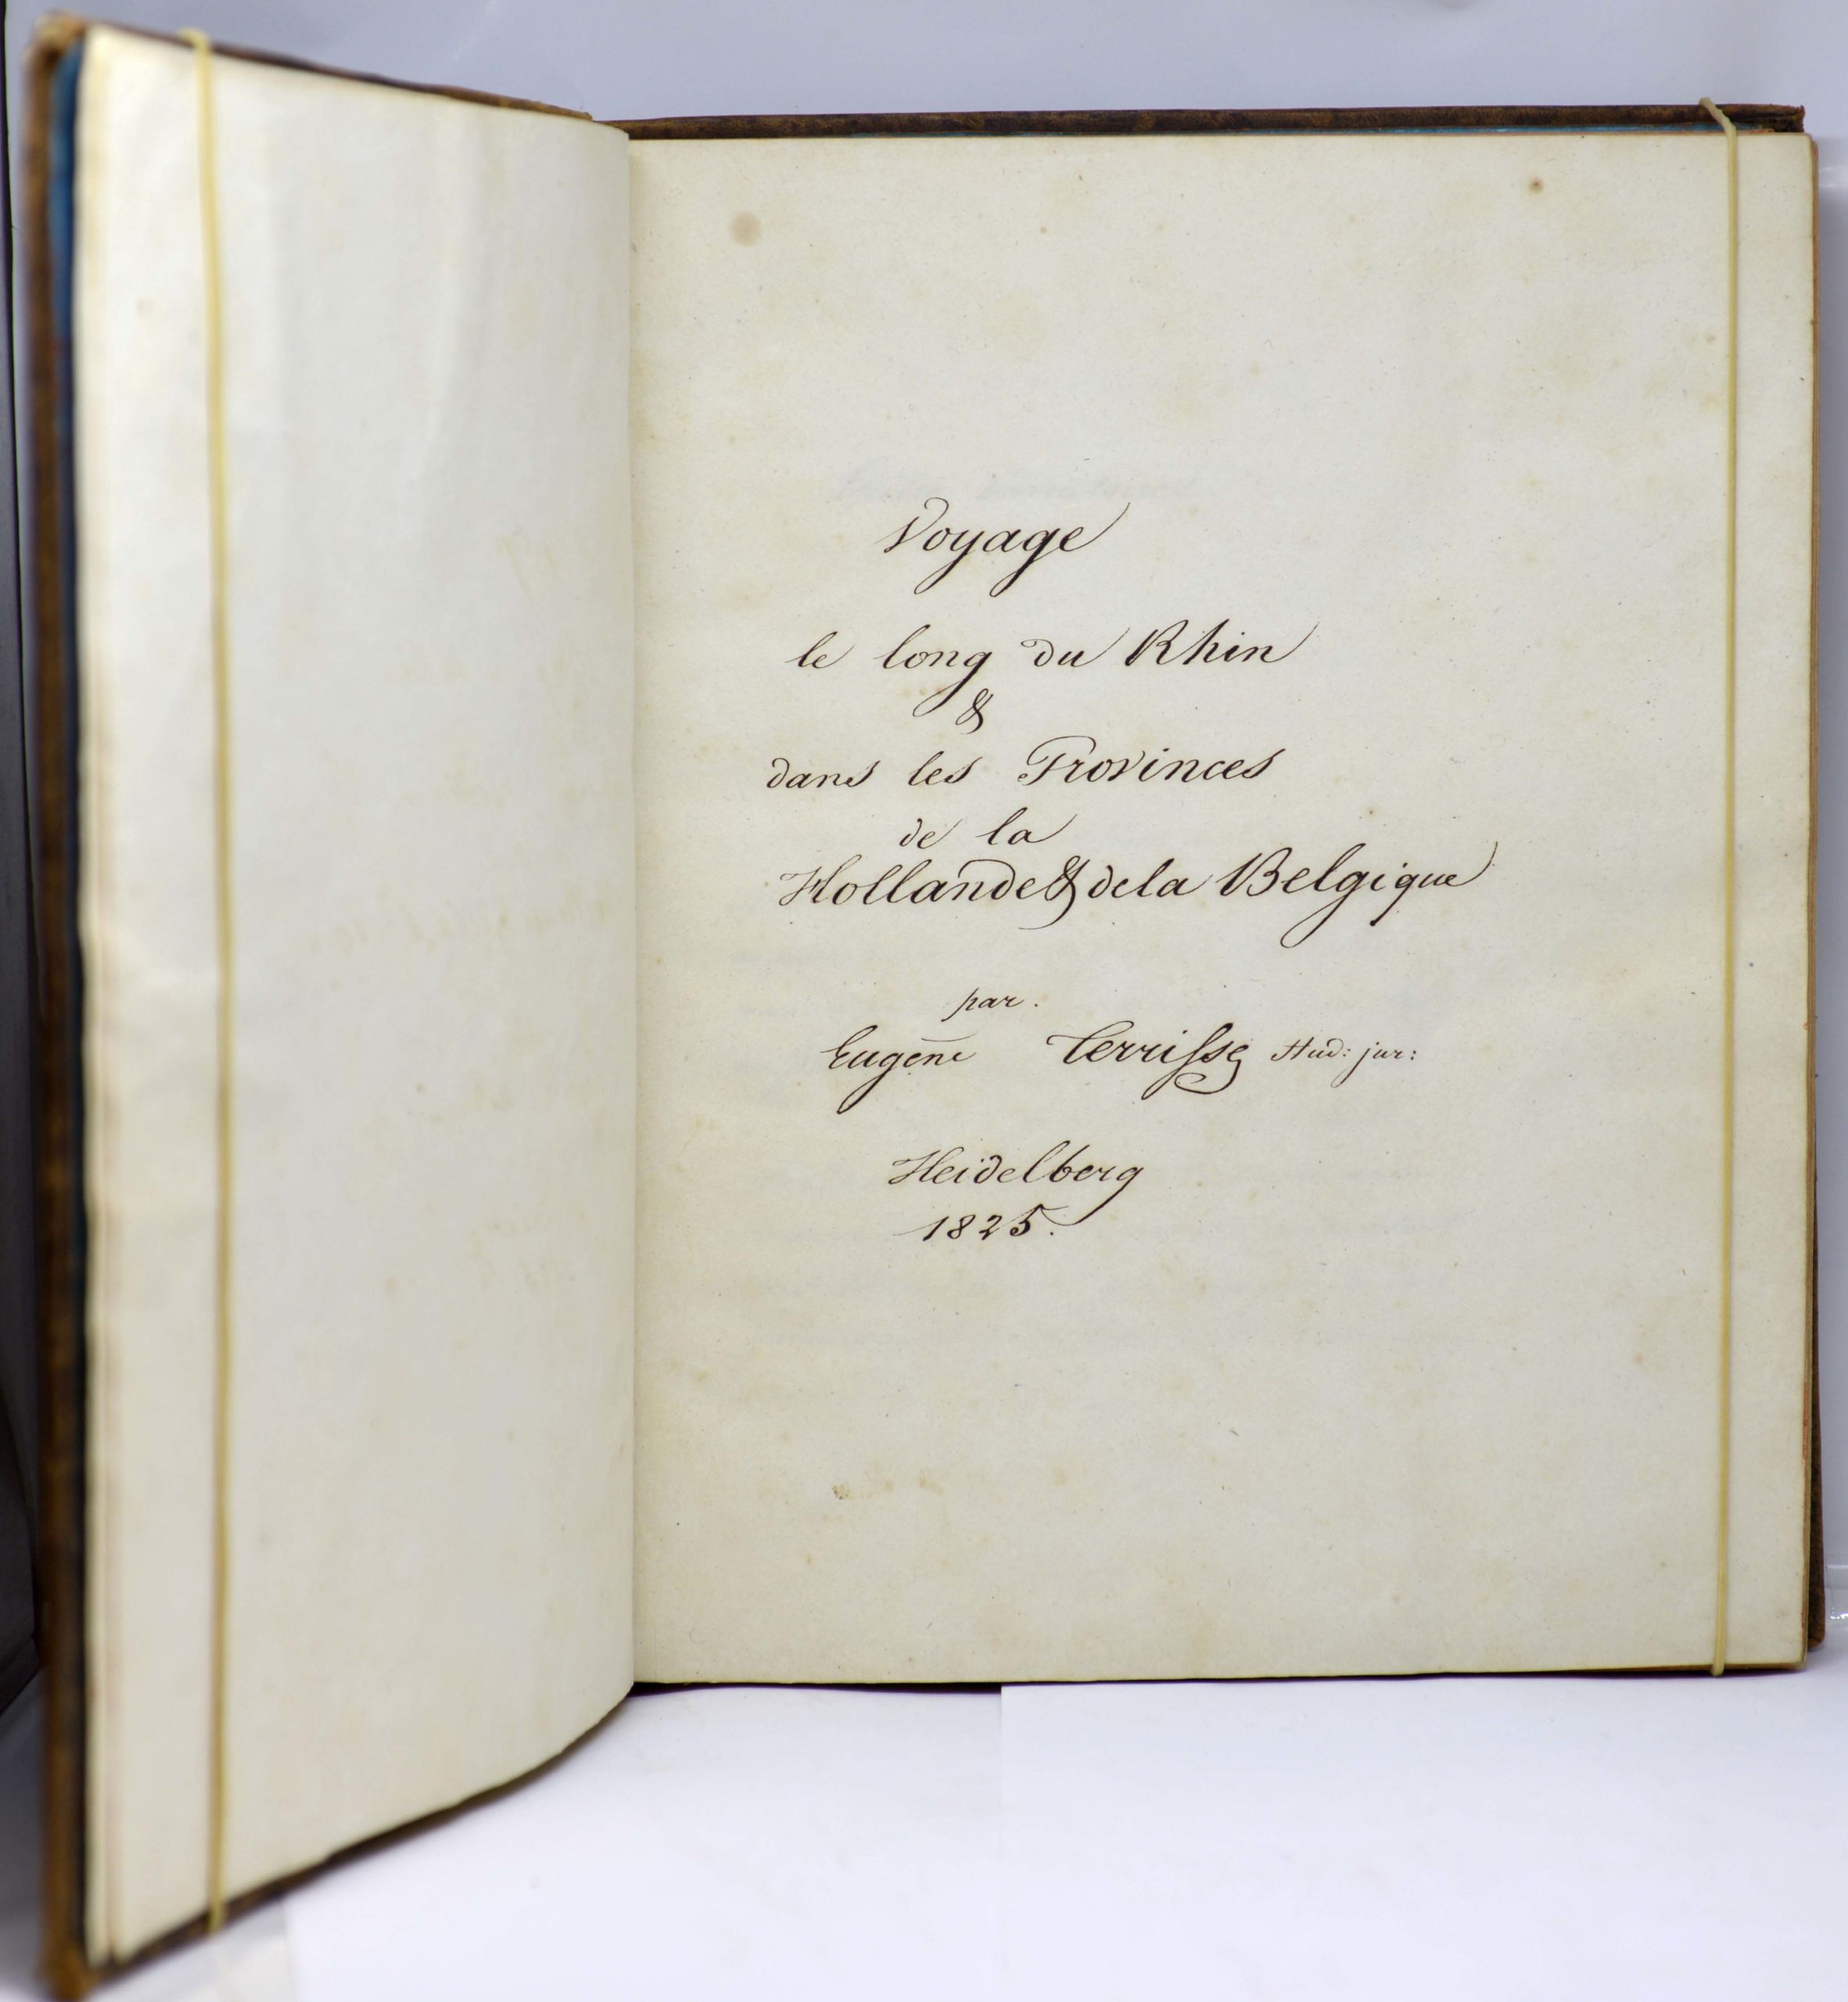 Voyage
le long du Rhin
&
dans les Provinces
de la
Hollande & de la Belgique
par.
Eugène Terrisse stud: jur:
Heidelberg
1825.